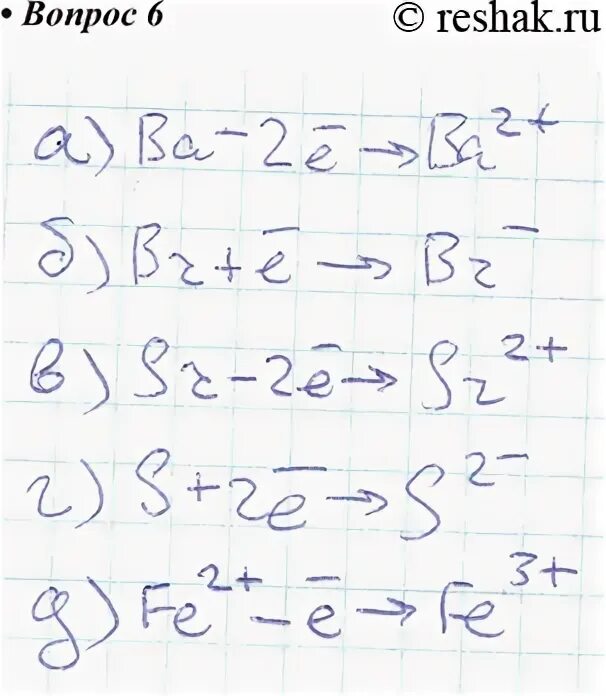 • Вопрос 6
© reshak.ru
а) Ba - 2e̅ → Ba²⁺
б) Br + e̅ → Br⁻
в) Sr - 2e̅ → Sr²⁺
г) S + 2e̅ → S²⁻
д) Fe²⁺ - e̅ → Fe³⁺